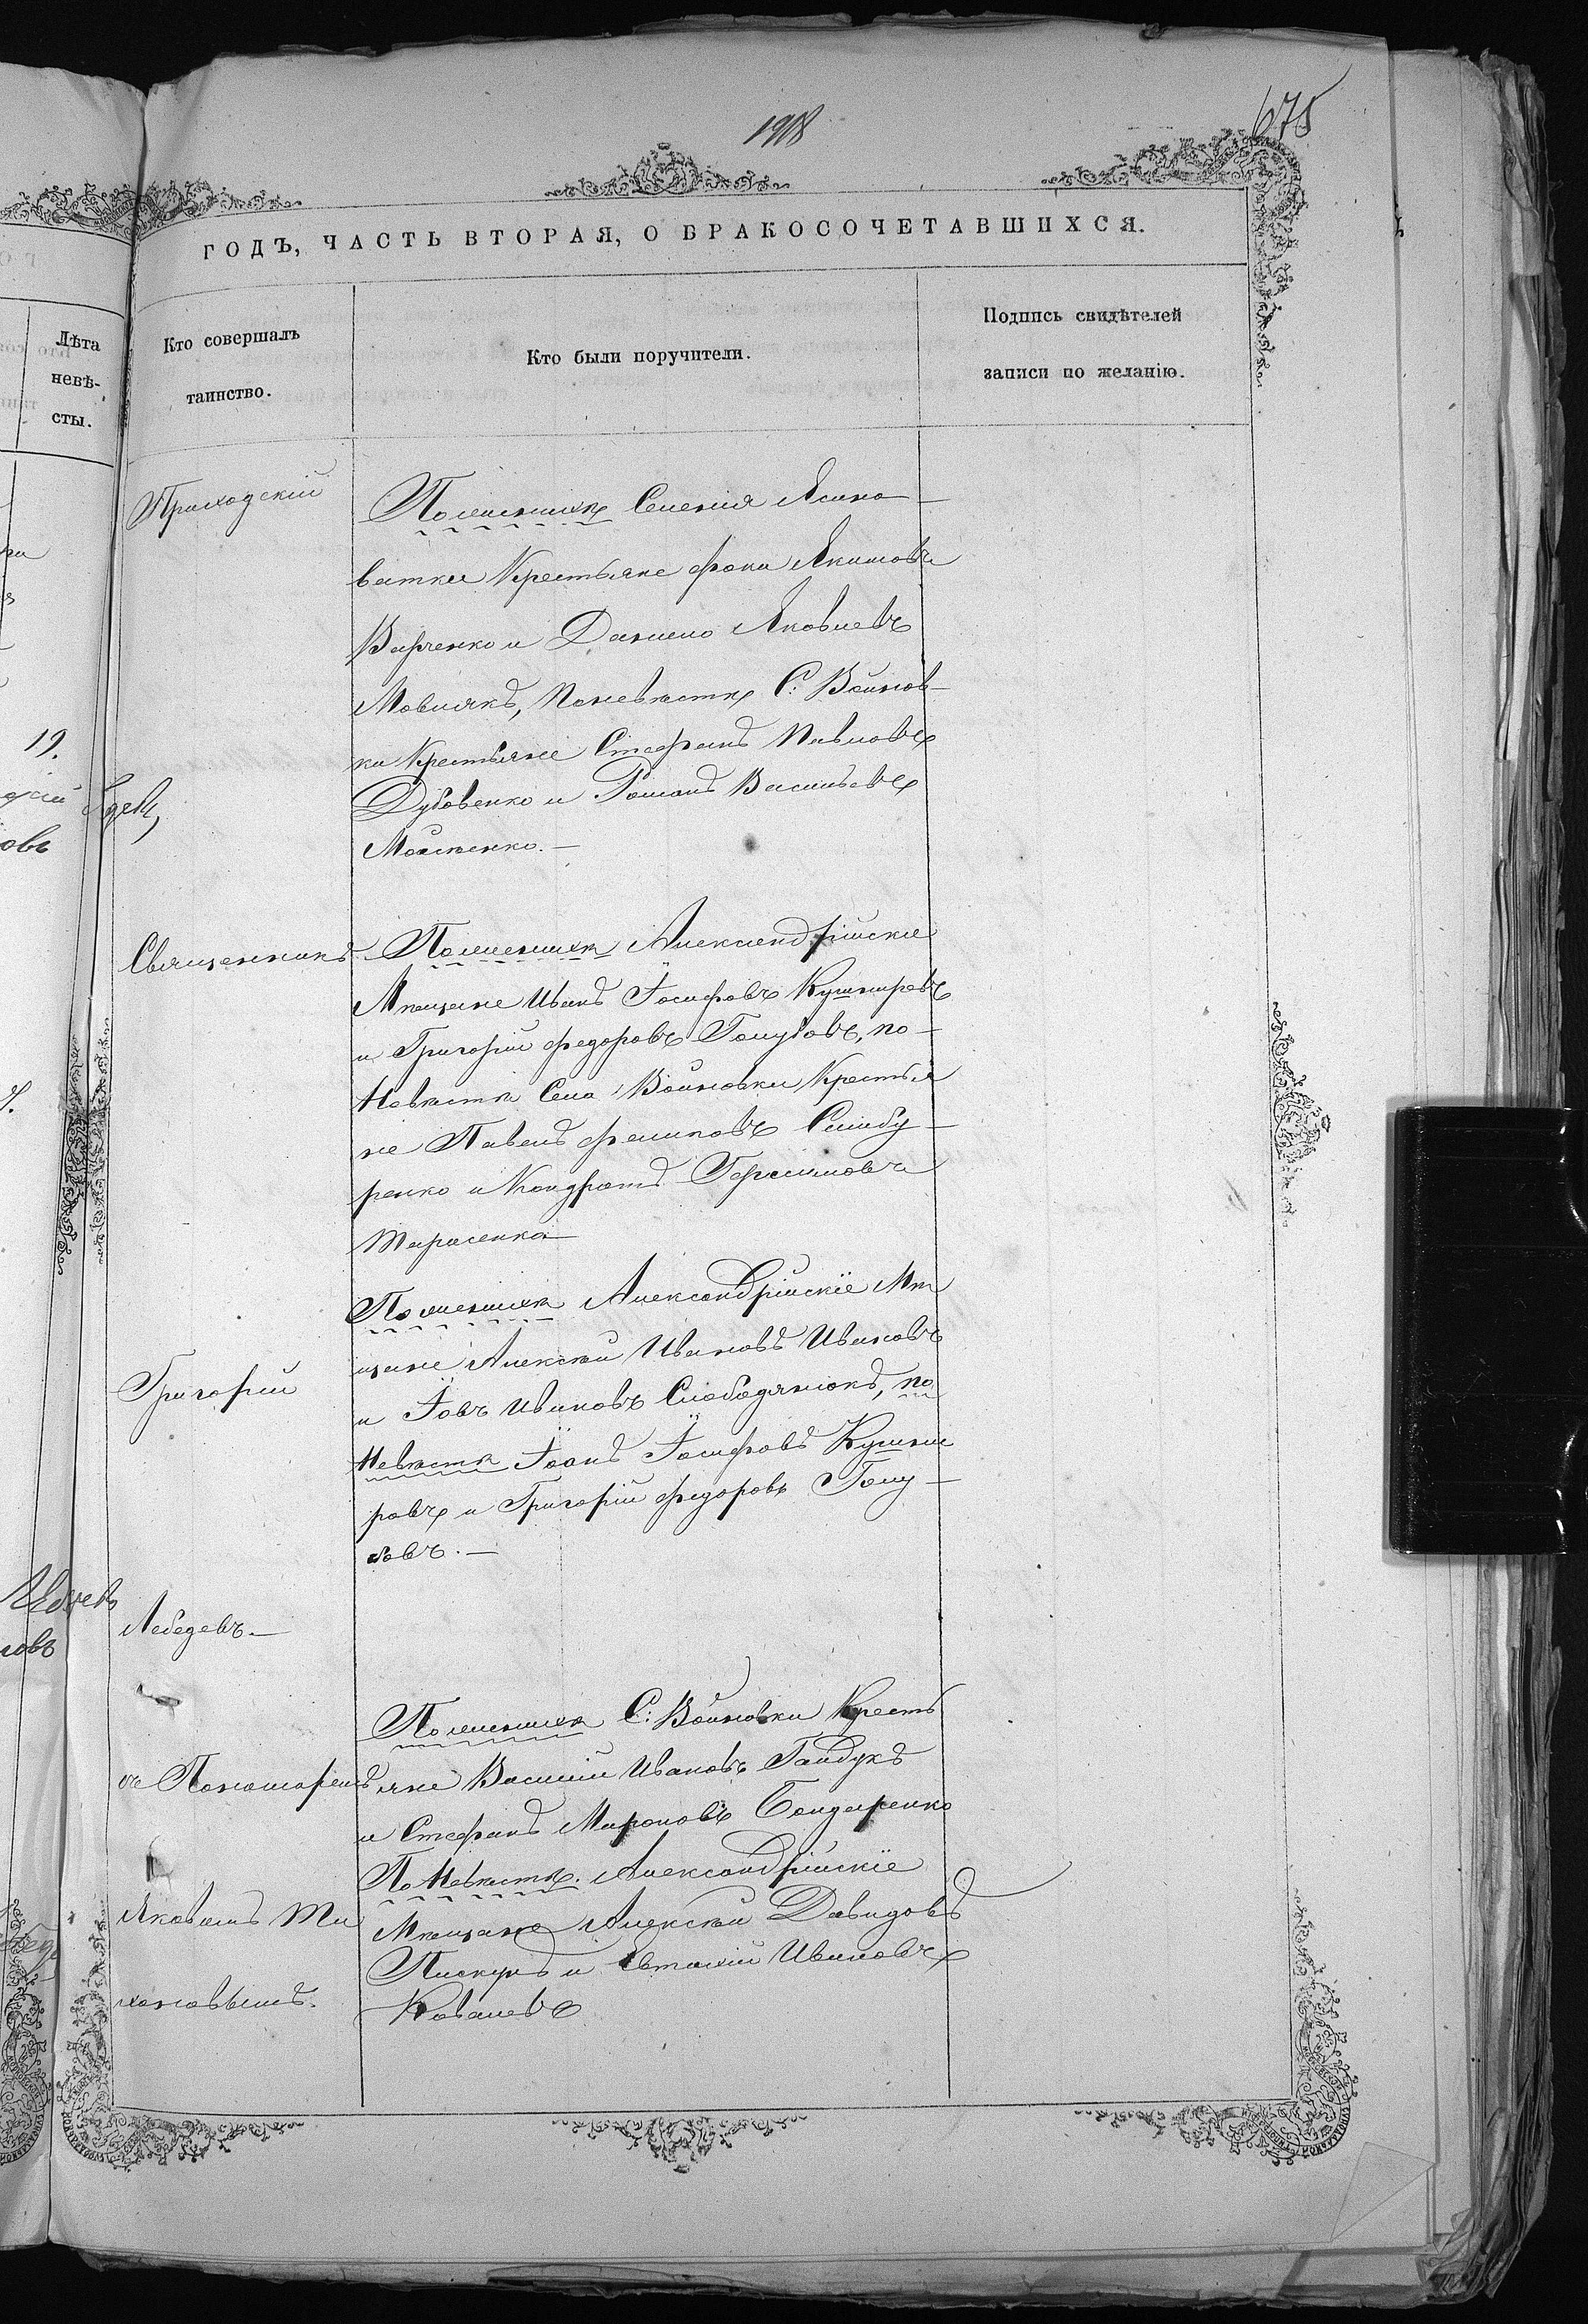 1918
675
ГОДЪ, ЧАСТЬ ВТОРАЯ, О БРАКОСОЧЕТАВШИХСЯ.
Лѣта
невѣ-
сты.
Кто совершалъ
таинство.
Кто были поручители.
Подпись свидѣтелей
записи по желанію.
19.
Приходскій
Священникъ
Григорій
Лебедевъ.—
съ Пономаремъ
Яковомъ Ти
хоновымъ.
По женихѣ Селенія Ясино-
ватки Крестьяне Фока Якимовъ
Харченко и Данило Яковлевъ
Мовчанъ, По невѣстѣ С: Войнов-
ки Крестьяне Стефанъ Павловъ
Дубовенко и Романъ Васильевъ
Моисеенко.—
По женихѣ Александрійскіе
Мѣщане Иванъ Іосифовъ Кушниревъ
и Григорій Федоровъ Голубовъ, по-
Невѣстѣ Села Войновки Крестья
не Павелъ Филиповъ Скибу-
ренко и Кондратъ Герасимовъ
Тарасенко
По женихѣ Александрійскіе Мѣ
щане Алексѣй Ивановъ Ивановъ
и Іовъ Ивановъ Слободянюкъ, по
Невѣстѣ Іоанъ Іосифовъ Кушни
ровъ и Григорій Федоровъ Голу-
бовъ.—
По женихѣ С: Войновки Кресть
яне Василій Ивановъ Гайдукъ
и Стефанъ Мироновъ Бондаренко
По Невѣстѣ. Александрійскіе
Мѣщане Алексѣй Давидовъ
Пискунъ и Евтихій Ивановъ
Ковалевъ